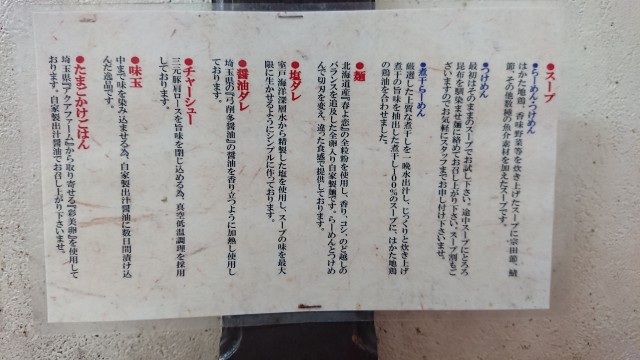 ●スープ
●らーめん・つけめん
はかた地鶏、香味野菜等を炊き上げたスープに宗田節、鯖
節、その他数種の魚介素材を加えたスープです。
●つけめん
最初はそのままのスープでお試し下さい。途中スープにとろろ
昆布を馴染ませ麺に絡めてお召し上がり下さい。スープ割もご
ざいますのでお気軽にスタッフまでお申し付け下さいませ。
●煮干らーめん
厳選した上質な煮干しを一晩水出しし、じっくりと炊き上げ
煮干の旨味を抽出した煮干し100%のスープに、はかた地鶏
の鶏油を合わせました。
●麺
北海道産『春よ恋』の全粒粉を使用し、香り、コシ、のど越しの
バランスを追及した全卵入り自家製麺です。らーめんとつけめ
んで切刃を変え、違った食感で提供しております。
●塩ダレ
室戸海洋深層水から精製した塩を使用し、スープの味を最大
限に生かせるようにシンプルに作っております。
●醤油ダレ
埼玉県の『弓削多醤油』の醤油を香り立つように加熱し使用し
ております。
●チャーシュー
三元豚肩ロースを旨味を閉じ込める為、真空低温調理を採用
しております。
●味玉
中まで味を染み込ませる為、自家製出汁醤油に数日間漬け込
んだ逸品です。
●たまごかけごはん
埼玉県『アクアファーム』から取り寄せる『彩美卵』を使用して
おります。自家製出汁醤油でお召し上がり下さいませ。